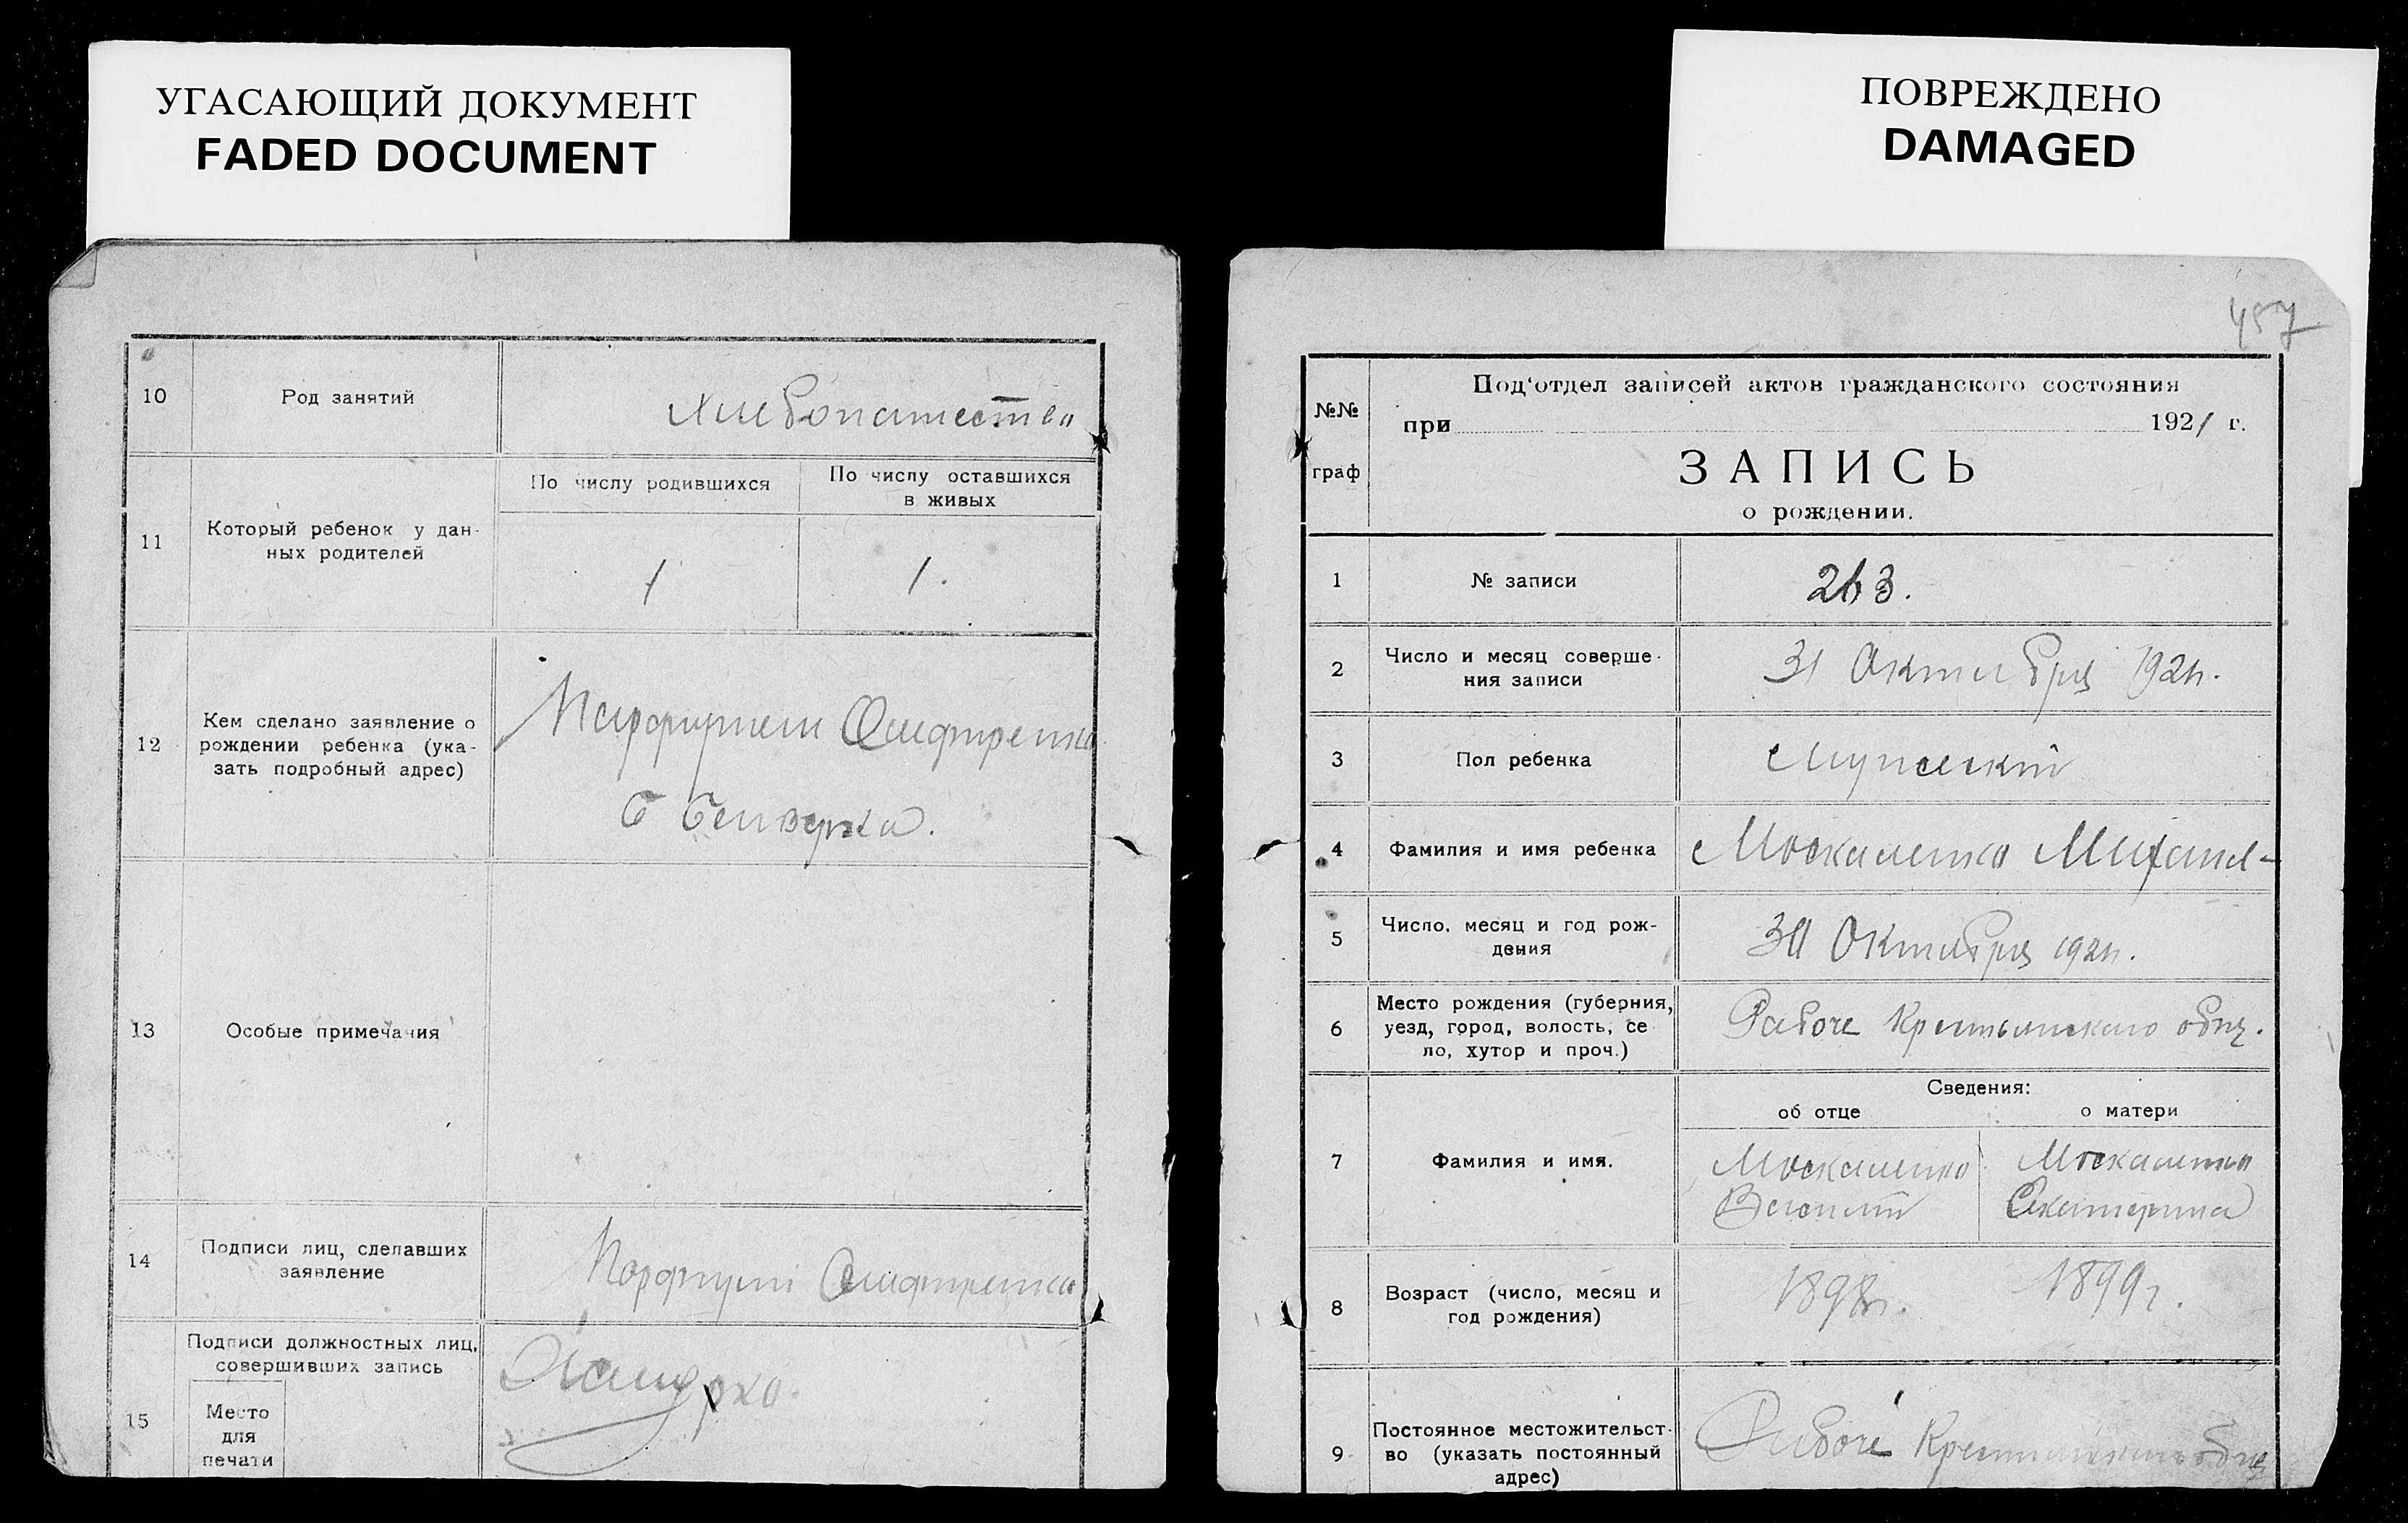 УГАСАЮЩИЙ ДОКУМЕНТ
FADED DOCUMENT
10
Род занятий
11
Который ребенок у дан-
ных родителей
По числу родившихся
По числу оставшихся
в живых
1
1.
12
Кем сделано заявление о
рождении ребенка (ука-
зать подробный адрес)
13
Особые примечания
14
Подписи лиц, сделавших
заявление
15
Подписи должностных лиц,
совершивших запись
Место
для
печати
ПОВРЕЖДЕНО
DAMAGED
457
№№
граф
Под'отдел записей актов гражданского состояния
при 1921 г.
ЗАПИСЬ
о рождении.
1
№ записи
263.
2
Число и месяц соверше-
ния записи
31 Октября 192
3
Пол ребенка
Мужский
4
Фамилия и имя ребенка
Москаленко Михаил
5
Число, месяц и год рож-
дения
30 Октября 192
6
Место рождения (губерния,
уезд, город, волость, се-
ло, хутор и проч.)
Рабоче Крестьянского общ.
7
Фамилия и имя.
Сведения:
об отце
о матери
Москаленко
Москаленко
Екатерина
8
Возраст (число, месяц и
год рождения)
1898г.
1899г.
9
Постоянное местожительст-
во (указать постоянный
адрес)
Рабоче Крестьянского общ